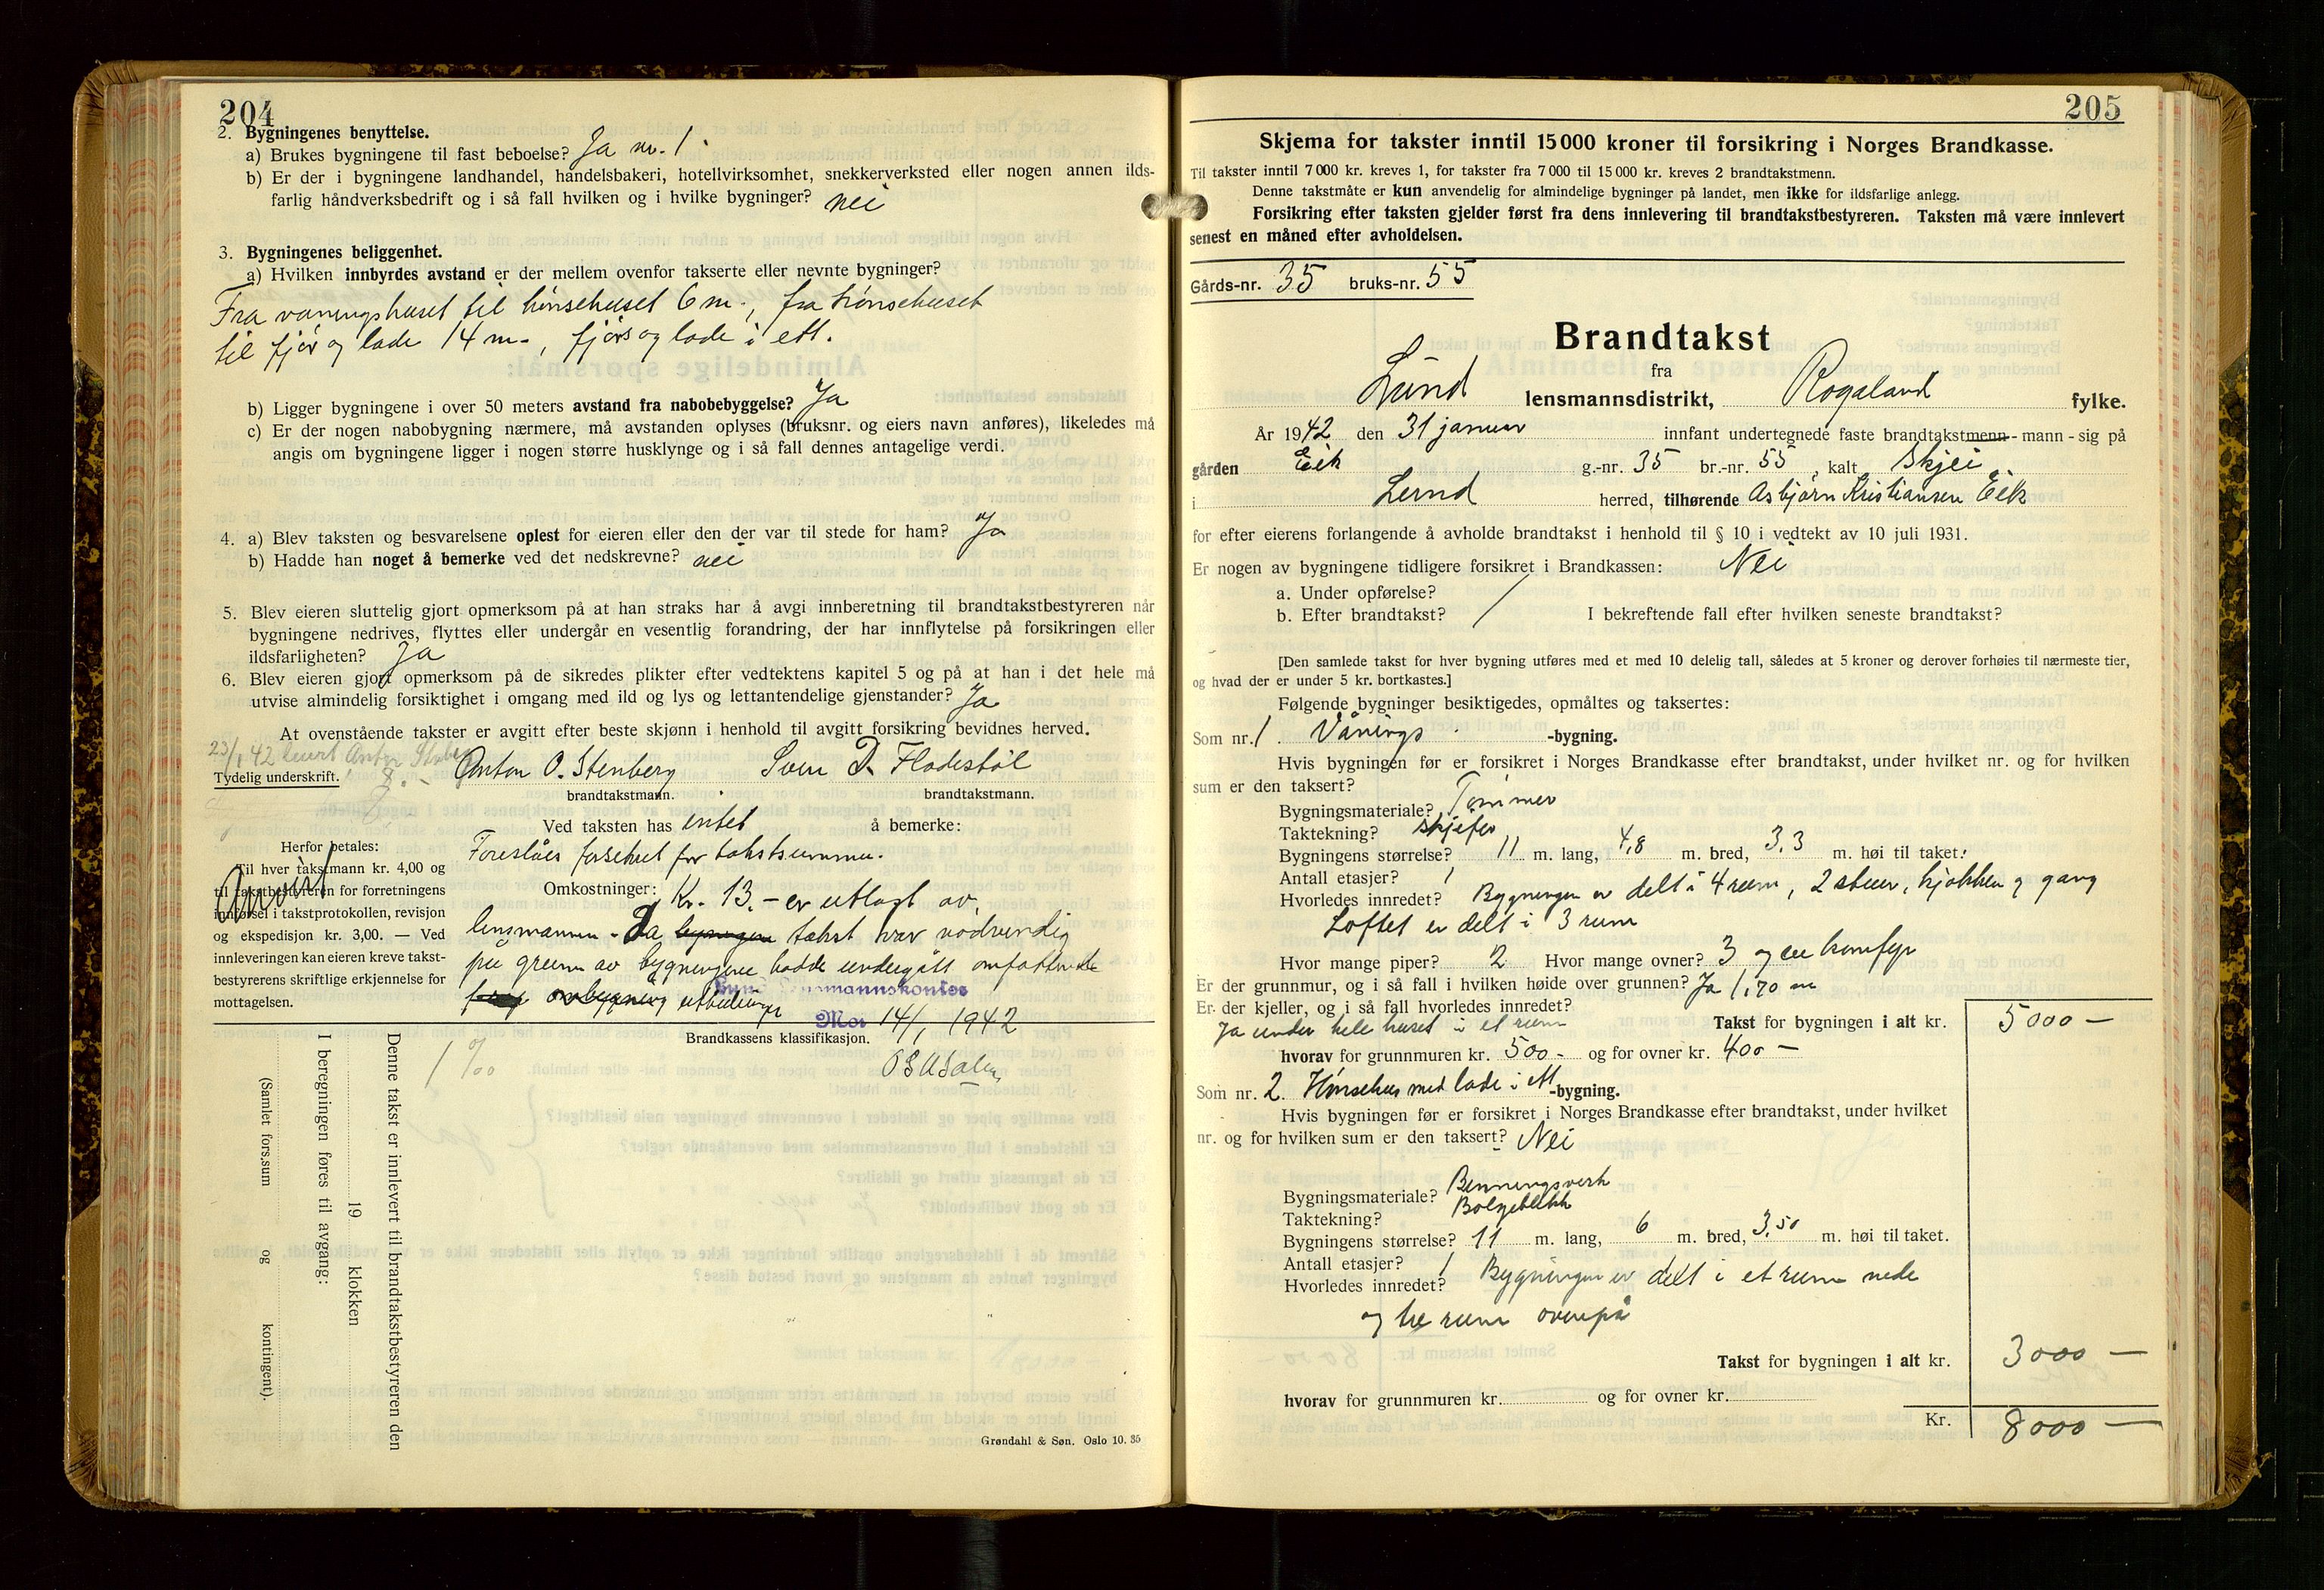 204
2. Bygningenes benyttelse.
a) Brukes bygningene til fast beboelse? Ja nr. 1.
b) Er der i bygningene landhandel, handelsbakeri, hotellvirksomhet, snekkerverksted eller nogen annen ilds-
farlig håndverksbedrift og i så fall hvilken og i hvilke bygninger? nei
3. Bygningenes beliggenhet.
a) Hvilken innbyrdes avstand er der mellem ovenfor takserte eller nevnte bygninger?
Fra våningshuset til hønsehuset 6 m., fra hønsehuset
til fjøs og lade 14 m., fjøs og lade i ett.
b) Ligger bygningene i over 50 meters avstand fra nabobebyggelse? Ja
c) Er der nogen nabobygning nærmere, må avstanden oplyses (bruksnr. og eiers navn anføres), likeledes må
angis om bygningene ligger i nogen større husklynge og i så fall dennes antagelige verdi.
4. a) Blev taksten og besvarelsene oplest for eieren eller den der var til stede for ham? Ja
b) Hadde han noget å bemerke ved det nedskrevne? nei
5. Blev eieren sluttelig gjort opmerksom på at han straks har å avgi innberetning til brandtakstbestyreren når
bygningene nedrives, flyttes eller undergår en vesentlig forandring, der har innflytelse på forsikringen eller
ildsfarligheten? Ja
6. Blev eieren gjort opmerksom på de sikredes plikter efter vedtektens kapitel 5 og på at han i det hele må
utvise almindelig forsiktighet i omgang med ild og lys og lettantendelige gjenstander? Ja
At ovenstående takster er avgitt efter beste skjønn i henhold til avgitt forsikring bevidnes herved.
23/1 42 levert Anton
Tydelig underskrift. Anton O. Stenberg Sven D. Flodestøl
brandtakstmann. brandtakstmann.
Ved taksten has intet å bemerke:
Foreslåes forsikret for takstsummen.
Herfor betales:
Til hver takstmann kr. 4,00 og
til takstbestyreren for forretningens
innførsel i takstprotokollen, revisjon
og ekspedisjon kr. 3,00. — Ved
innleveringen kan eieren kreve takst-
bestyrerens skriftlige erkjennelse for
mottagelsen.
Omkostninger: Kr. 13.- er utlagt av
lensmannen. Da bygningen takst var nødvendig
på grunn av bygningene hadde undergått omfattende
ombygning utbedringer
Lund Lensmannskontor
Moi 14/1 1942
Brandkassens klassifikasjon.
1 ‰
Denne takst er innlevert til brandtakstbestyreren den
19 klokken
I beregningen føres til avgang:
(Samlet fors.sum og kontingent).
Grøndahl & Søn. Oslo 10. 35
205
Skjema for takster inntil 15 000 kroner til forsikring i Norges Brandkasse.
Til takster inntil 7 000 kr. kreves 1, for takster fra 7 000 til 15 000 kr. kreves 2 brandtakstmenn.
Denne takstmåte er kun anvendelig for almindelige bygninger på landet, men ikke for ildsfarlige anlegg.
Forsikring efter taksten gjelder først fra dens innlevering til brandtakstbestyreren. Taksten må være innlevert
senest en måned efter avholdelsen.
Gårds-nr. 35 bruks-nr. 55
Brandtakst
fra
Lund lensmannsdistrikt, Rogaland fylke.
År 1942 den 31 januar innfant undertegnede faste brandtakstmenn - mann - sig på
gården Eik g.-nr. 35 br.-nr. 55, kalt Skjei
i Lund herred, tilhørende Asbjørn Kristiansen Eik
for efter eierens forlangende å avholde brandtakst i henhold til § 10 i vedtekt av 10 juli 1931.
Er nogen av bygningene tidligere forsikret i Brandkassen: Nei
a. Under opførelse?
b. Efter brandtakst? / I bekreftende fall efter hvilken seneste brandtakst?
[Den samlede takst for hver bygning utføres med et med 10 delelig tall, således at 5 kroner og derover forhøies til nærmeste tier,
og hvad der er under 5 kr. bortkastes.]
Følgende bygninger besiktigedes, opmåltes og taksertes:
Som nr. 1. Vånings -bygning.
Hvis bygningen før er forsikret i Norges Brandkasse efter brandtakst, under hvilket nr. og for hvilken
sum er den taksert?
Bygningsmateriale? Tømmer
Taktekning? skjefer
Bygningens størrelse? 11 m. lang, 4,8 m. bred, 3,3 m. høi til taket.
Antall etasjer? 1
Hvorledes innredet? Bygningen er delt i 4 rum, 2 stuer, kjøkken og gang
Loftet er delt i 3 rum
Hvor mange piper? 2 Hvor mange ovner? 3 og en komfyr
Er der grunnmur, og i så fall i hvilken høide over grunnen? Ja 1,70 m
Er der kjeller, og i så fall hvorledes innredet?
Ja under hele huset i et rum Takst for bygningen i alt kr. 5000 —
hvorav for grunnmuren kr. 500 - og for ovner kr. 400 —
Som nr. 2. Hønsehus med lade i ett -bygning.
Hvis bygningen før er forsikret i Norges Brandkasse efter brandtakst, under hvilket
nr. og for hvilken sum er den taksert? Nei
Bygningsmateriale? Binningsverk
Taktekning? Bølgeblikk
Bygningens størrelse? 11 m. lang, 6 m. bred, 3,50 m. høi til taket.
Antall etasjer? 1
Hvorledes innredet? Bygningen er delt i et rum nede
og tre rum ovenpå
Takst for bygningen i alt kr. 3000 —
hvorav for grunnmuren kr. og for ovner kr.
Kr. 8000 —